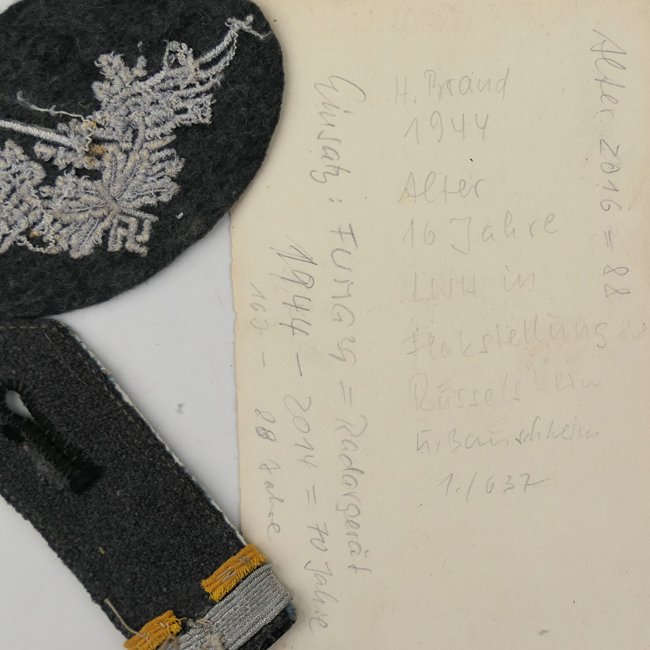 H. Brand
1944
Alter
16 Jahre
LWH in
Flakstellung
Rüsselsheim
u. Bauschheim
1./637
Alter 2016 = 88
Einsatz: FUMG = Radargerät
1944 - 2014 = 70 Jahre
16J - 88 Jahre